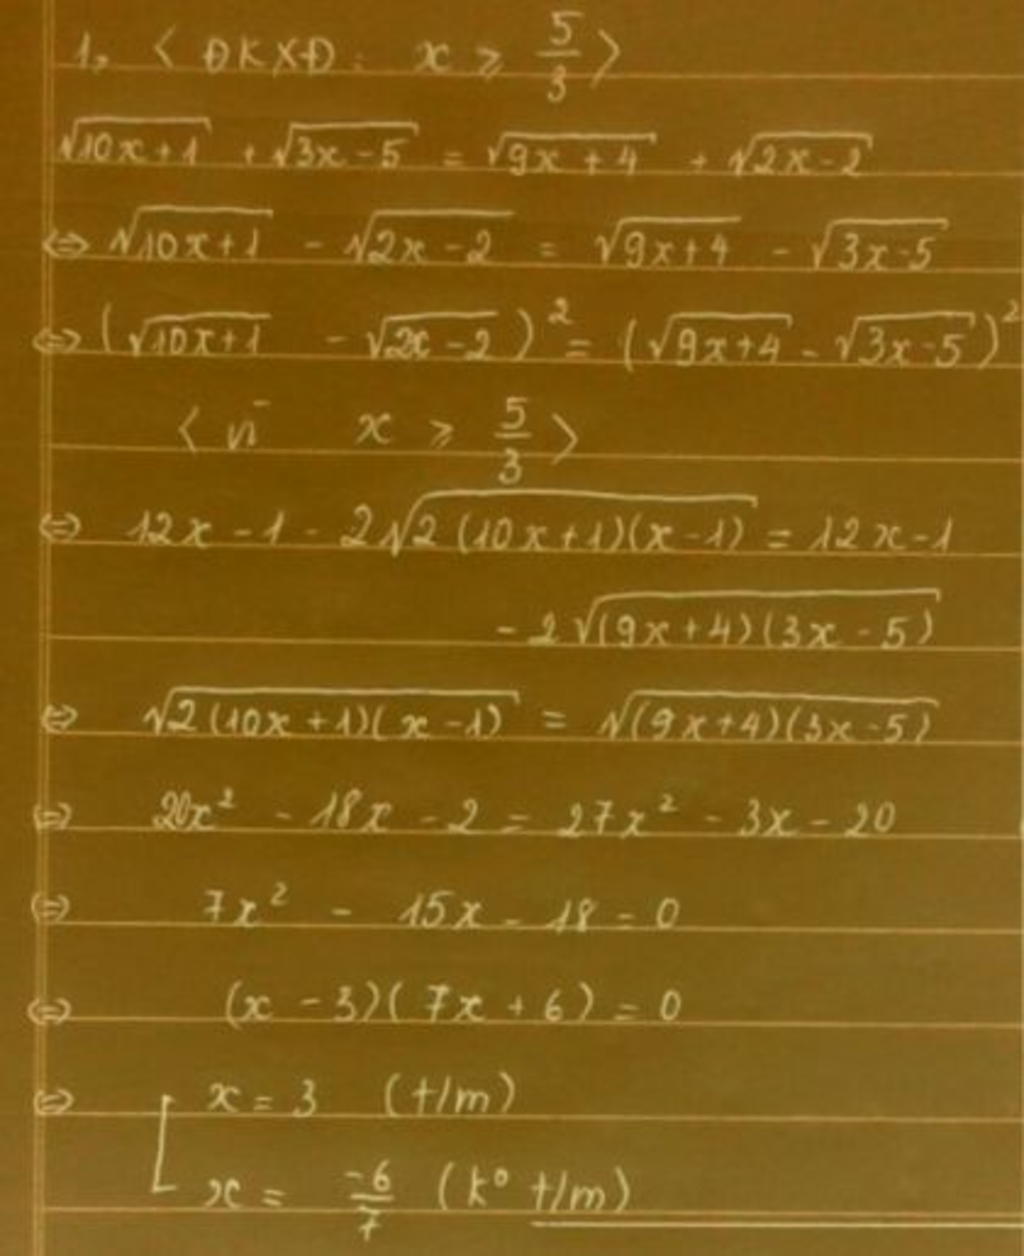 1, < ĐKXĐ : x ⩾ 5/3 >
√(10x+1) + √(3x-5) = √(9x+4) + √(2x-2)
⇔ √(10x+1) - √(2x-2) = √(9x+4) - √(3x-5)
⇔ (√(10x+1) - √(2x-2))² = (√(9x+4) - √(3x-5))²
< vì x ⩾ 5/3 >
⇔ 12x - 1 - 2√(2(10x+1)(x-1)) = 12x - 1
- 2√((9x+4)(3x-5))
⇔ √(2(10x+1)(x-1)) = √((9x+4)(3x-5))
⇔ 20x² - 18x - 2 = 27x² - 3x - 20
⇔ 7x² - 15x - 18 = 0
⇔ (x - 3)(7x + 6) = 0
⇔ [ x = 3 (t/m)
x = -6/7 (k° t/m)